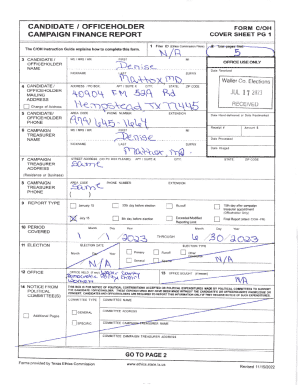 CANDIDATE / OFFICEHOLDER
CAMPAIGN FINANCE REPORT
FORM C/OH
COVER SHEET PG 1
The C/OH Instruction Guide explains how to complete this form.
1 Filer ID (Ethics Commission Filers)
N/A
2 Total pages filed:
5
3 CANDIDATE / OFFICEHOLDER NAME
MS / MRS / MR FIRST MI
Denise
NICKNAME LAST SUFFIX
Mattox MD
OFFICE USE ONLY
Date Received
Waller Co. Elections
JUL 17 2023
RECEIVED
4 CANDIDATE / OFFICEHOLDER MAILING ADDRESS
Change of Address
ADDRESS / PO BOX; APT / SUITE #; CITY; STATE; ZIP CODE
Hempstead TX 77445
5 CANDIDATE/ OFFICEHOLDER PHONE
AREA CODE PHONE NUMBER EXTENSION
Date Hand-delivered or Date Postmarked
Receipt # Amount $
Date Processed
Date Imaged
6 CAMPAIGN TREASURER NAME
MS / MRS / MR FIRST MI
Denise
NICKNAME LAST SUFFIX
Mattox MD
7 CAMPAIGN TREASURER ADDRESS
(Residence or Business)
STREET ADDRESS (NO PO BOX PLEASE); APT / SUITE #; CITY; STATE; ZIP CODE
Same
8 CAMPAIGN TREASURER PHONE
AREA CODE PHONE NUMBER EXTENSION
Same
9 REPORT TYPE
January 15
30th day before election
Runoff
15th day after campaign treasurer appointment (Officeholder Only)
July 15
8th day before election
Exceeded Modified Reporting Limit
Final Report (Attach C/OH - FR)
10 PERIOD COVERED
Month Day Year
1 1 2023
THROUGH
Month Day Year
6 30 2023
11 ELECTION
ELECTION DATE
Month Day Year
N/A
ELECTION TYPE
Primary
Runoff
Other Description
General
Special
N/A
12 OFFICE
OFFICE HELD (if any)
13 OFFICE SOUGHT (if known)
N/A
14 NOTICE FROM POLITICAL COMMITTEE(S)
Additional Pages
COMMITTEE TYPE
GENERAL
SPECIFIC
COMMITTEE NAME
N/A
COMMITTEE ADDRESS
COMMITTEE CAMPAIGN TREASURER NAME
COMMITTEE CAMPAIGN TREASURER ADDRESS
GO TO PAGE 2
Forms provided by Texas Ethics Commission
www.ethics.state.tx.us
Revised 11/15/2022